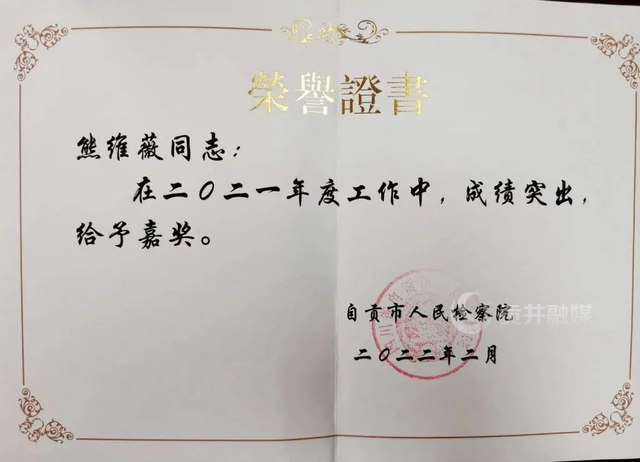 榮譽證書
熊维薇同志：
在二〇二一年度工作中，成绩突出，
给予嘉奖。
自贡市人民检察院
二〇二二年二月
贡井融媒